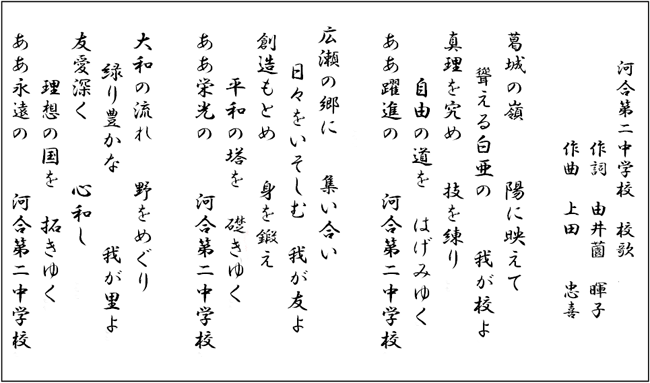 河合第二中学校　校歌
作詞　由井薗　暉子
作曲　上田　忠喜
葛城の嶺　陽に映えて
聳える白亜の　我が校よ
真理を究め　技を練り
自由の道を　はげみゆく
ああ躍進の　河合第二中学校
広瀬の郷に　集い合い
日々をいそしむ　我が友よ
創造もとめ　身を鍛え
平和の塔を　礎きゆく
ああ栄光の　河合第二中学校
大和の流れ　野をめぐり
緑り豊かな　我が里よ
友愛深く　心和し
理想の国を　拓きゆく
ああ永遠の　河合第二中学校